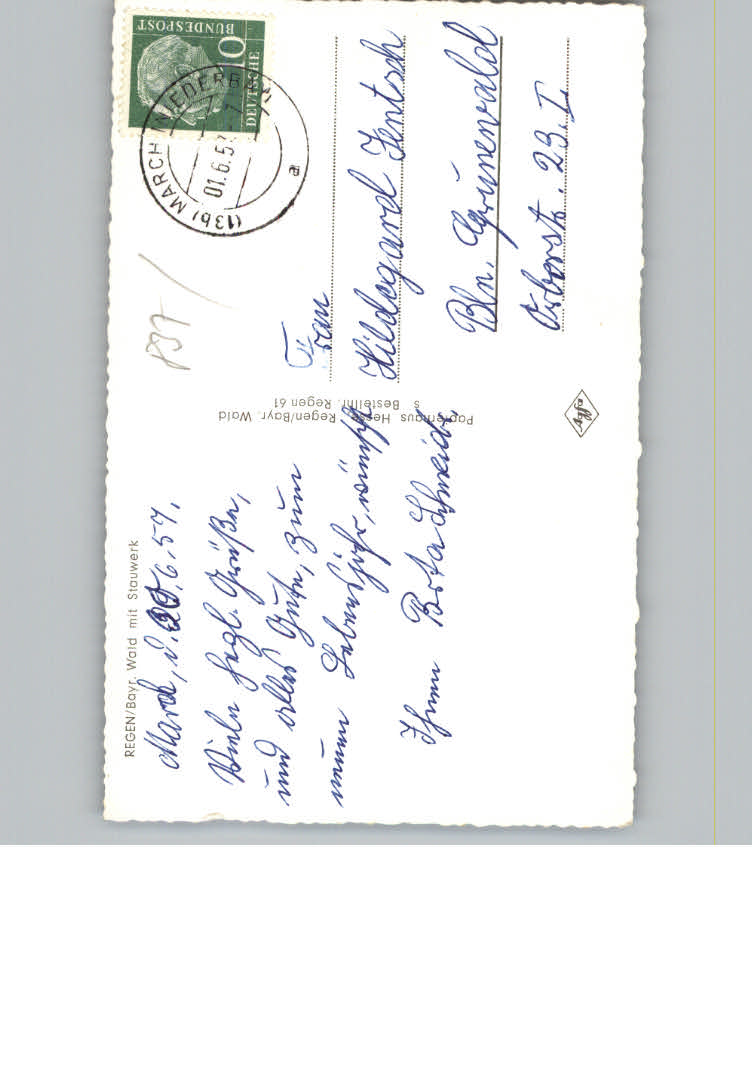 REGEN/Bayr. Wald mit Stauwerk
March, d. 6.57.
Viele hrzl. Grüße,
und alles Gute, zum
neuen Lebensjahr, wünscht
Ihnen Berta Schneider
Papierhaus Hesse, Regen/Bayr. Wald
s. Bestellnr. Regen 61
DEUTSCHE
BUNDESPOST
(13b) MARCH (NIEDERB
01.6.57
a
837
Frau
Hildegard Jentsch
Bln. Grunewald
23. I
Agfa